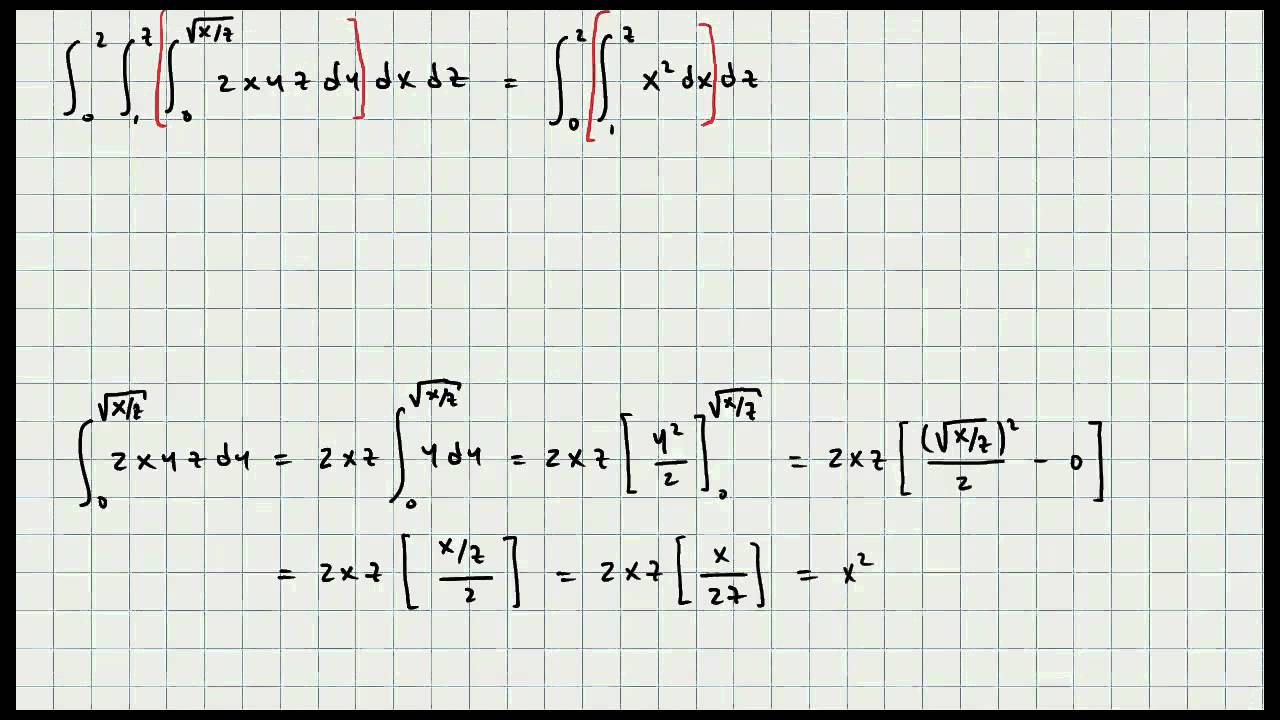 ∫₀² ∫₁ᶻ [∫₀^√(x/z) 2xyz dy] dx dz = ∫₀² [∫₁ᶻ x² dx] dz
∫₀^√(x/z) 2xyz dy = 2xz ∫₀^√(x/z) y dy = 2xz [y²/2]₀^√(x/z) = 2xz [(√(x/z))²/2 - 0]
= 2xz [(x/z)/2] = 2xz [x/2z] = x²